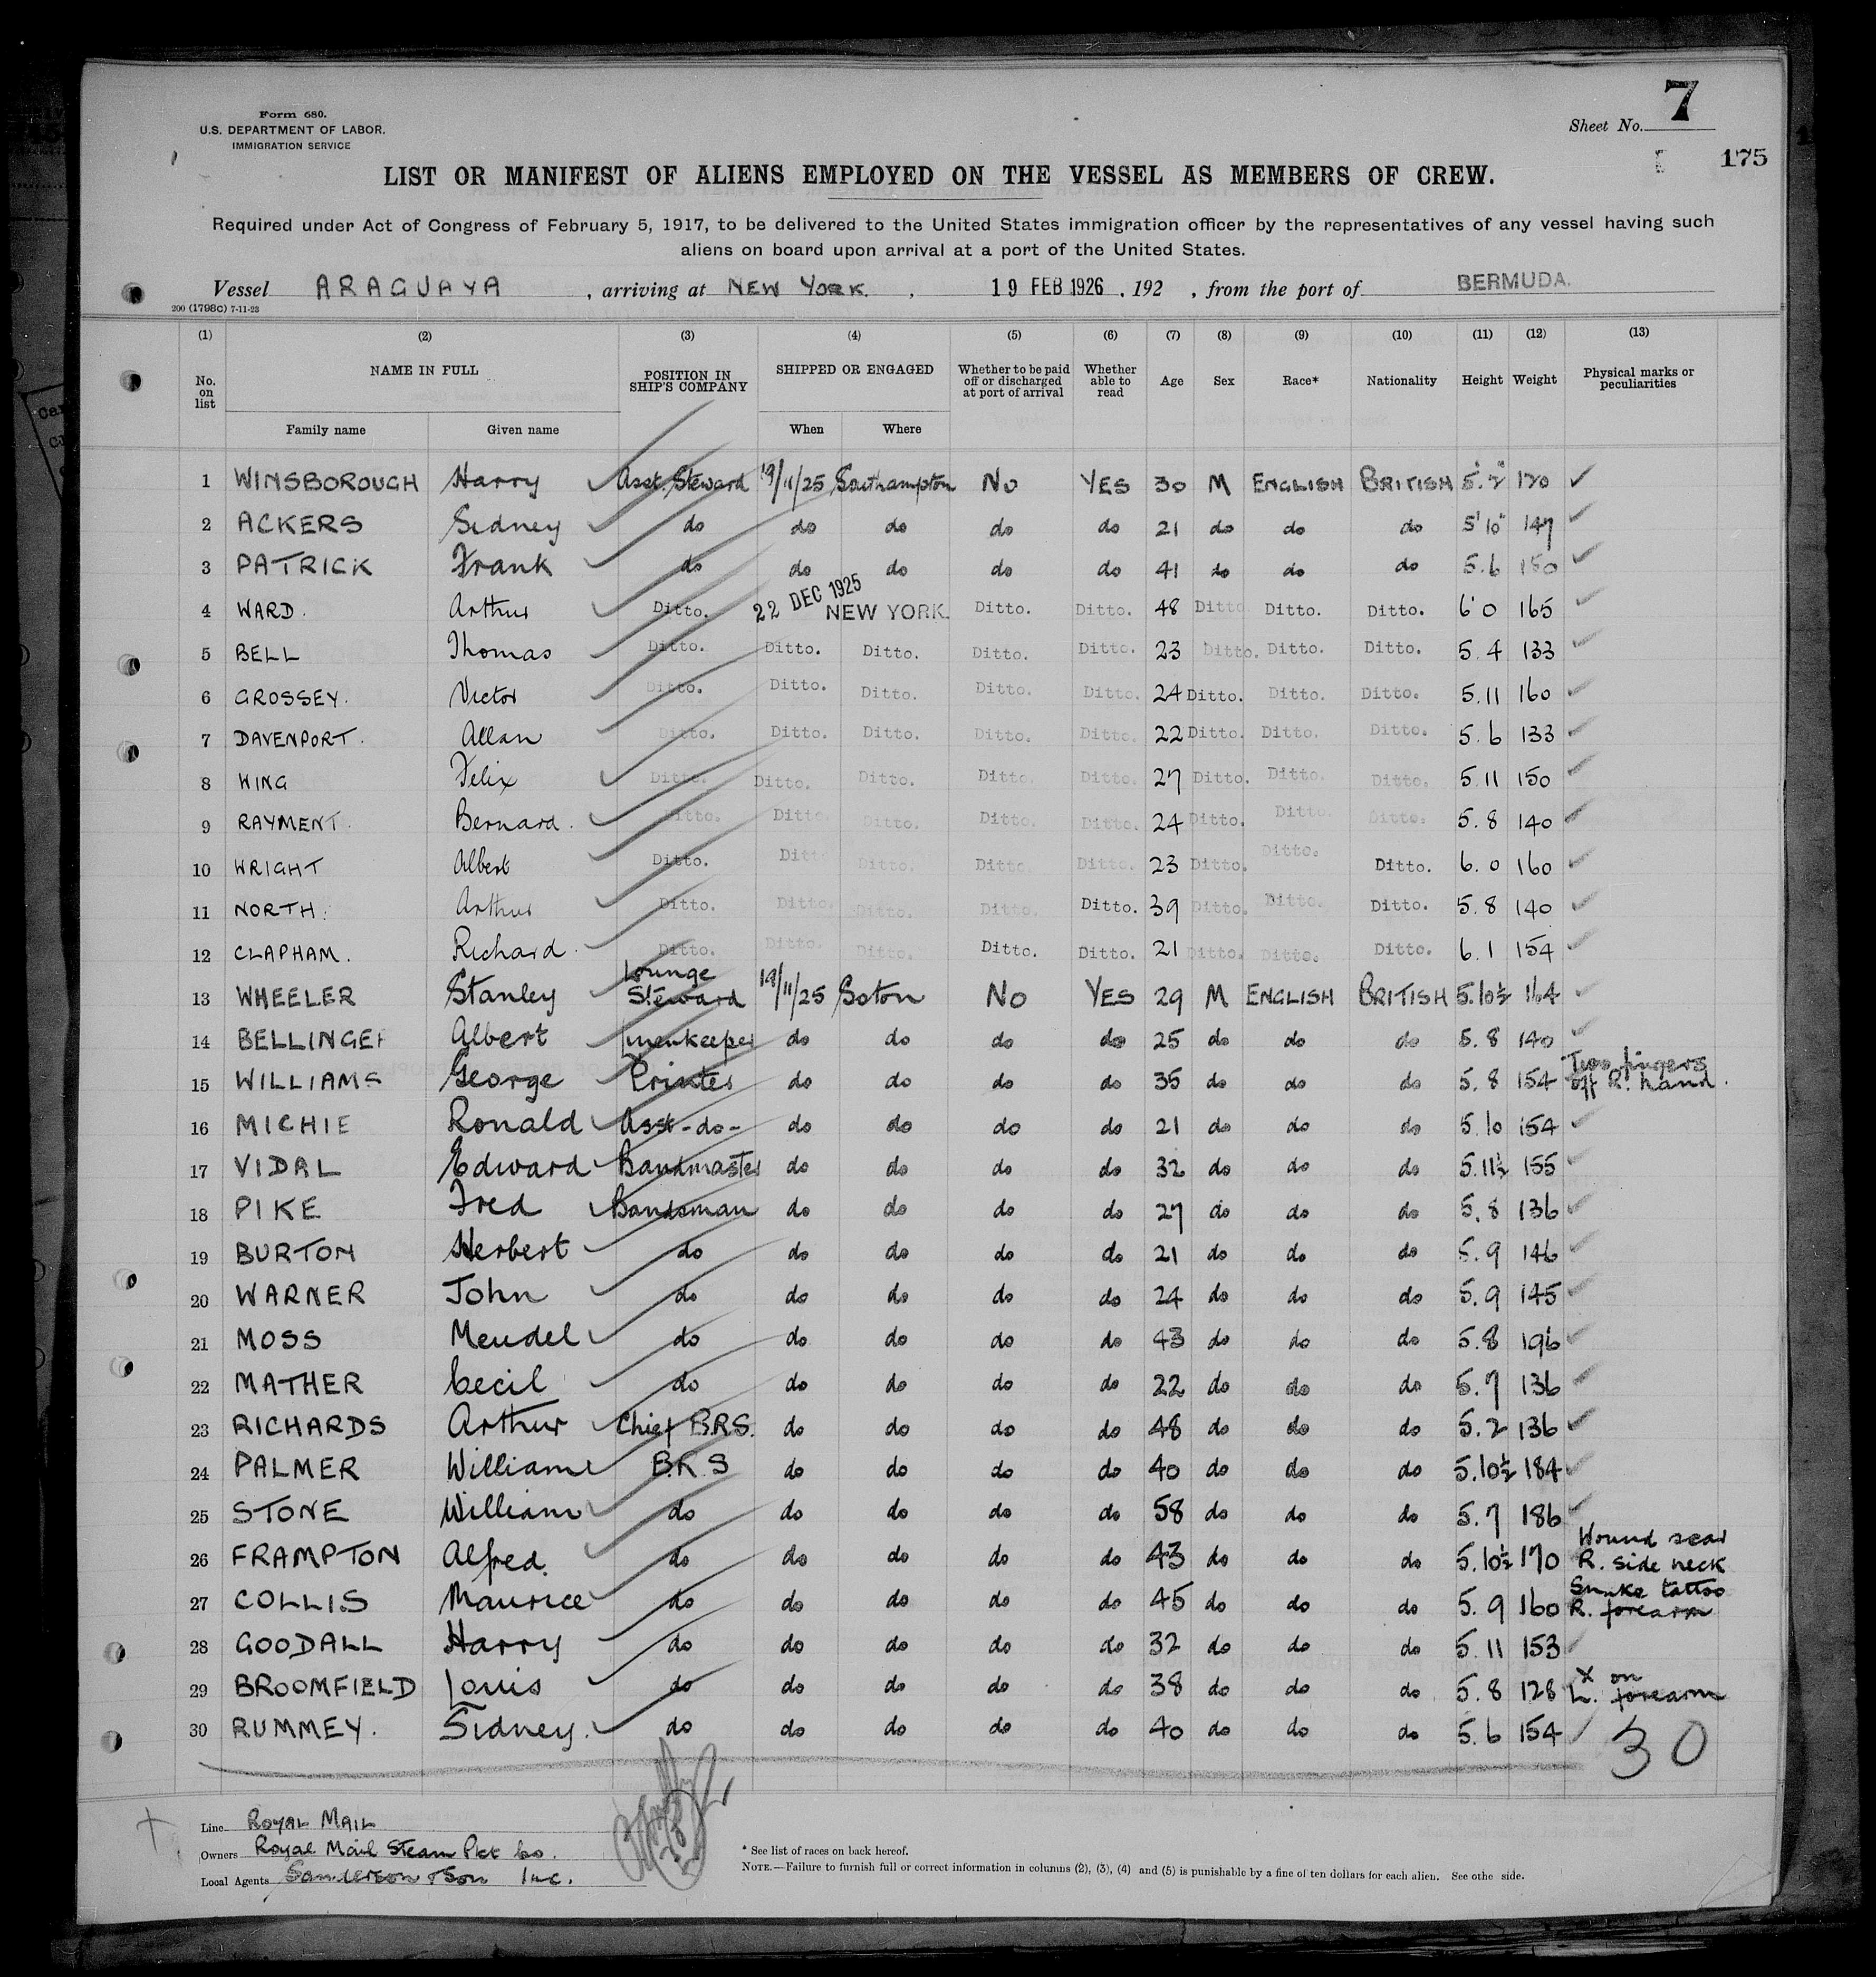 Form 680.
U.S. DEPARTMENT OF LABOR.
IMMIGRATION SERVICE
Sheet No. 7
175
LIST OR MANIFEST OF ALIENS EMPLOYED ON THE VESSEL AS MEMBERS OF CREW.
Required under Act of Congress of February 5, 1917, to be delivered to the United States immigration officer by the representatives of any vessel having such
aliens on board upon arrival at a port of the United States.
Vessel ARAGUAYA, arriving at NEW YORK, 19 FEB 1926, 192 , from the port of BERMUDA.
200 (1798C) 7-11-23
(1) (2) (3) (4) (5) (6) (7) (8) (9) (10) (11) (12) (13)
No. on list NAME IN FULL POSITION IN SHIP'S COMPANY SHIPPED OR ENGAGED Whether to be paid off or discharged at port of arrival Whether able to read Age Sex Race* Nationality Height Weight Physical marks or peculiarities
Family name Given name When Where
1 WINSBOROUGH Harry Asst. Steward 19/11/25 Southampton No YES 30 M ENGLISH BRITISH 5'.2" 120
2 ACKERS Sidney do do do do do 21 do do do 5'10" 147
3 PATRICK Frank do do do do do 41 do do do 5.6 150
4 WARD. Arthur Ditto. 22 DEC 1925 NEW YORK. Ditto. Ditto. 48 Ditto Ditto. Ditto. 6'0 165
5 BELL Thomas Ditto. Ditto. Ditto. Ditto. Ditto. 23 Ditto. Ditto. Ditto. 5.4 133
6 GROSSEY. Victor Ditto. Ditto. Ditto. Ditto. Ditto. 24 Ditto. Ditto. Ditto. 5.11 160
7 DAVENPORT. Allan Ditto. Ditto. Ditto. Ditto. Ditto. 22 Ditto. Ditto. Ditto. 5.6 133
8 WING Felix Ditto. Ditto. Ditto. Ditto. Ditto. 27 Ditto. Ditto. Ditto. 5.11 150
9 RAYMENT. Bernard. Ditto. Ditto. Ditto. Ditto. Ditto. 24 Ditto. Ditto. Ditto. 5.8 140
10 WRIGHT Albert Ditto. Ditto Ditto. Ditto. Ditto. 23 Ditto. Ditto. Ditto. 6.0 160
11 NORTH. Arthur Ditto. Ditto. Ditto. Ditto. Ditto. 39 Ditto. Ditto. Ditto. 5.8 140
12 CLAPHAM. Richard. Ditto. Ditto. Ditto. Ditto. Ditto. 21 Ditto. Ditto. Ditto. 6.1 154
13 WHEELER Stanley Lounge Steward 19/11/25 Soton No YES 29 M ENGLISH BRITISH 5.10½ 164
14 BELLINGER Albert do do do do 25 do do do 5.8 140
15 WILLIAMS George Printer do do do do 35 do do do 5.8 154 Two fingers off R. hand.
16 MICHIE Ronald Asst -do- do do do do 21 do do do 5.10 154
17 VIDAL Edward Bandmaster do do do do 32 do do do 5.11½ 155
18 PIKE Fred Bandsman do do do do 27 do do do 5.8 136
19 BURTON Herbert do do do do do 21 do do do 5.9 146
20 WARNER John do do do do do 24 do do do 5.9 145
21 MOSS Mendel do do do do do 43 do do do 5.8 196
22 MATHER Cecil do do do do do 22 do do do 5.7 136
23 RICHARDS Arthur Chief B.R.S. do do do do 48 do do do 5.2 136
24 PALMER William B.R.S do do do do 40 do do do 5.10½ 184
25 STONE William do do do do do 58 do do do 5.7 186
26 FRAMPTON Alfred. do do do do do 43 do do do 5.10½ 170 Wound scar R. side neck
27 COLLIS Maurice do do do do do 45 do do do 5.9 160 Snake tattoo R. forearm
28 GOODALL Harry do do do do do 32 do do do 5.11 153
29 BROOMFIELD Louis do do do do do 38 do do do 5.8 128 X on L. forearm
30 RUMMEY. Sidney. do do do do do 40 do do do 5.6 154
30
Line ROYAL MAIL
Owners Royal Mail Steam Pkt Co.
Local Agents Sanderson & Son Inc.
* See list of races on back hereof.
NOTE.—Failure to furnish full or correct information in columns (2), (3), (4) and (5) is punishable by a fine of ten dollars for each alien. See othe side.